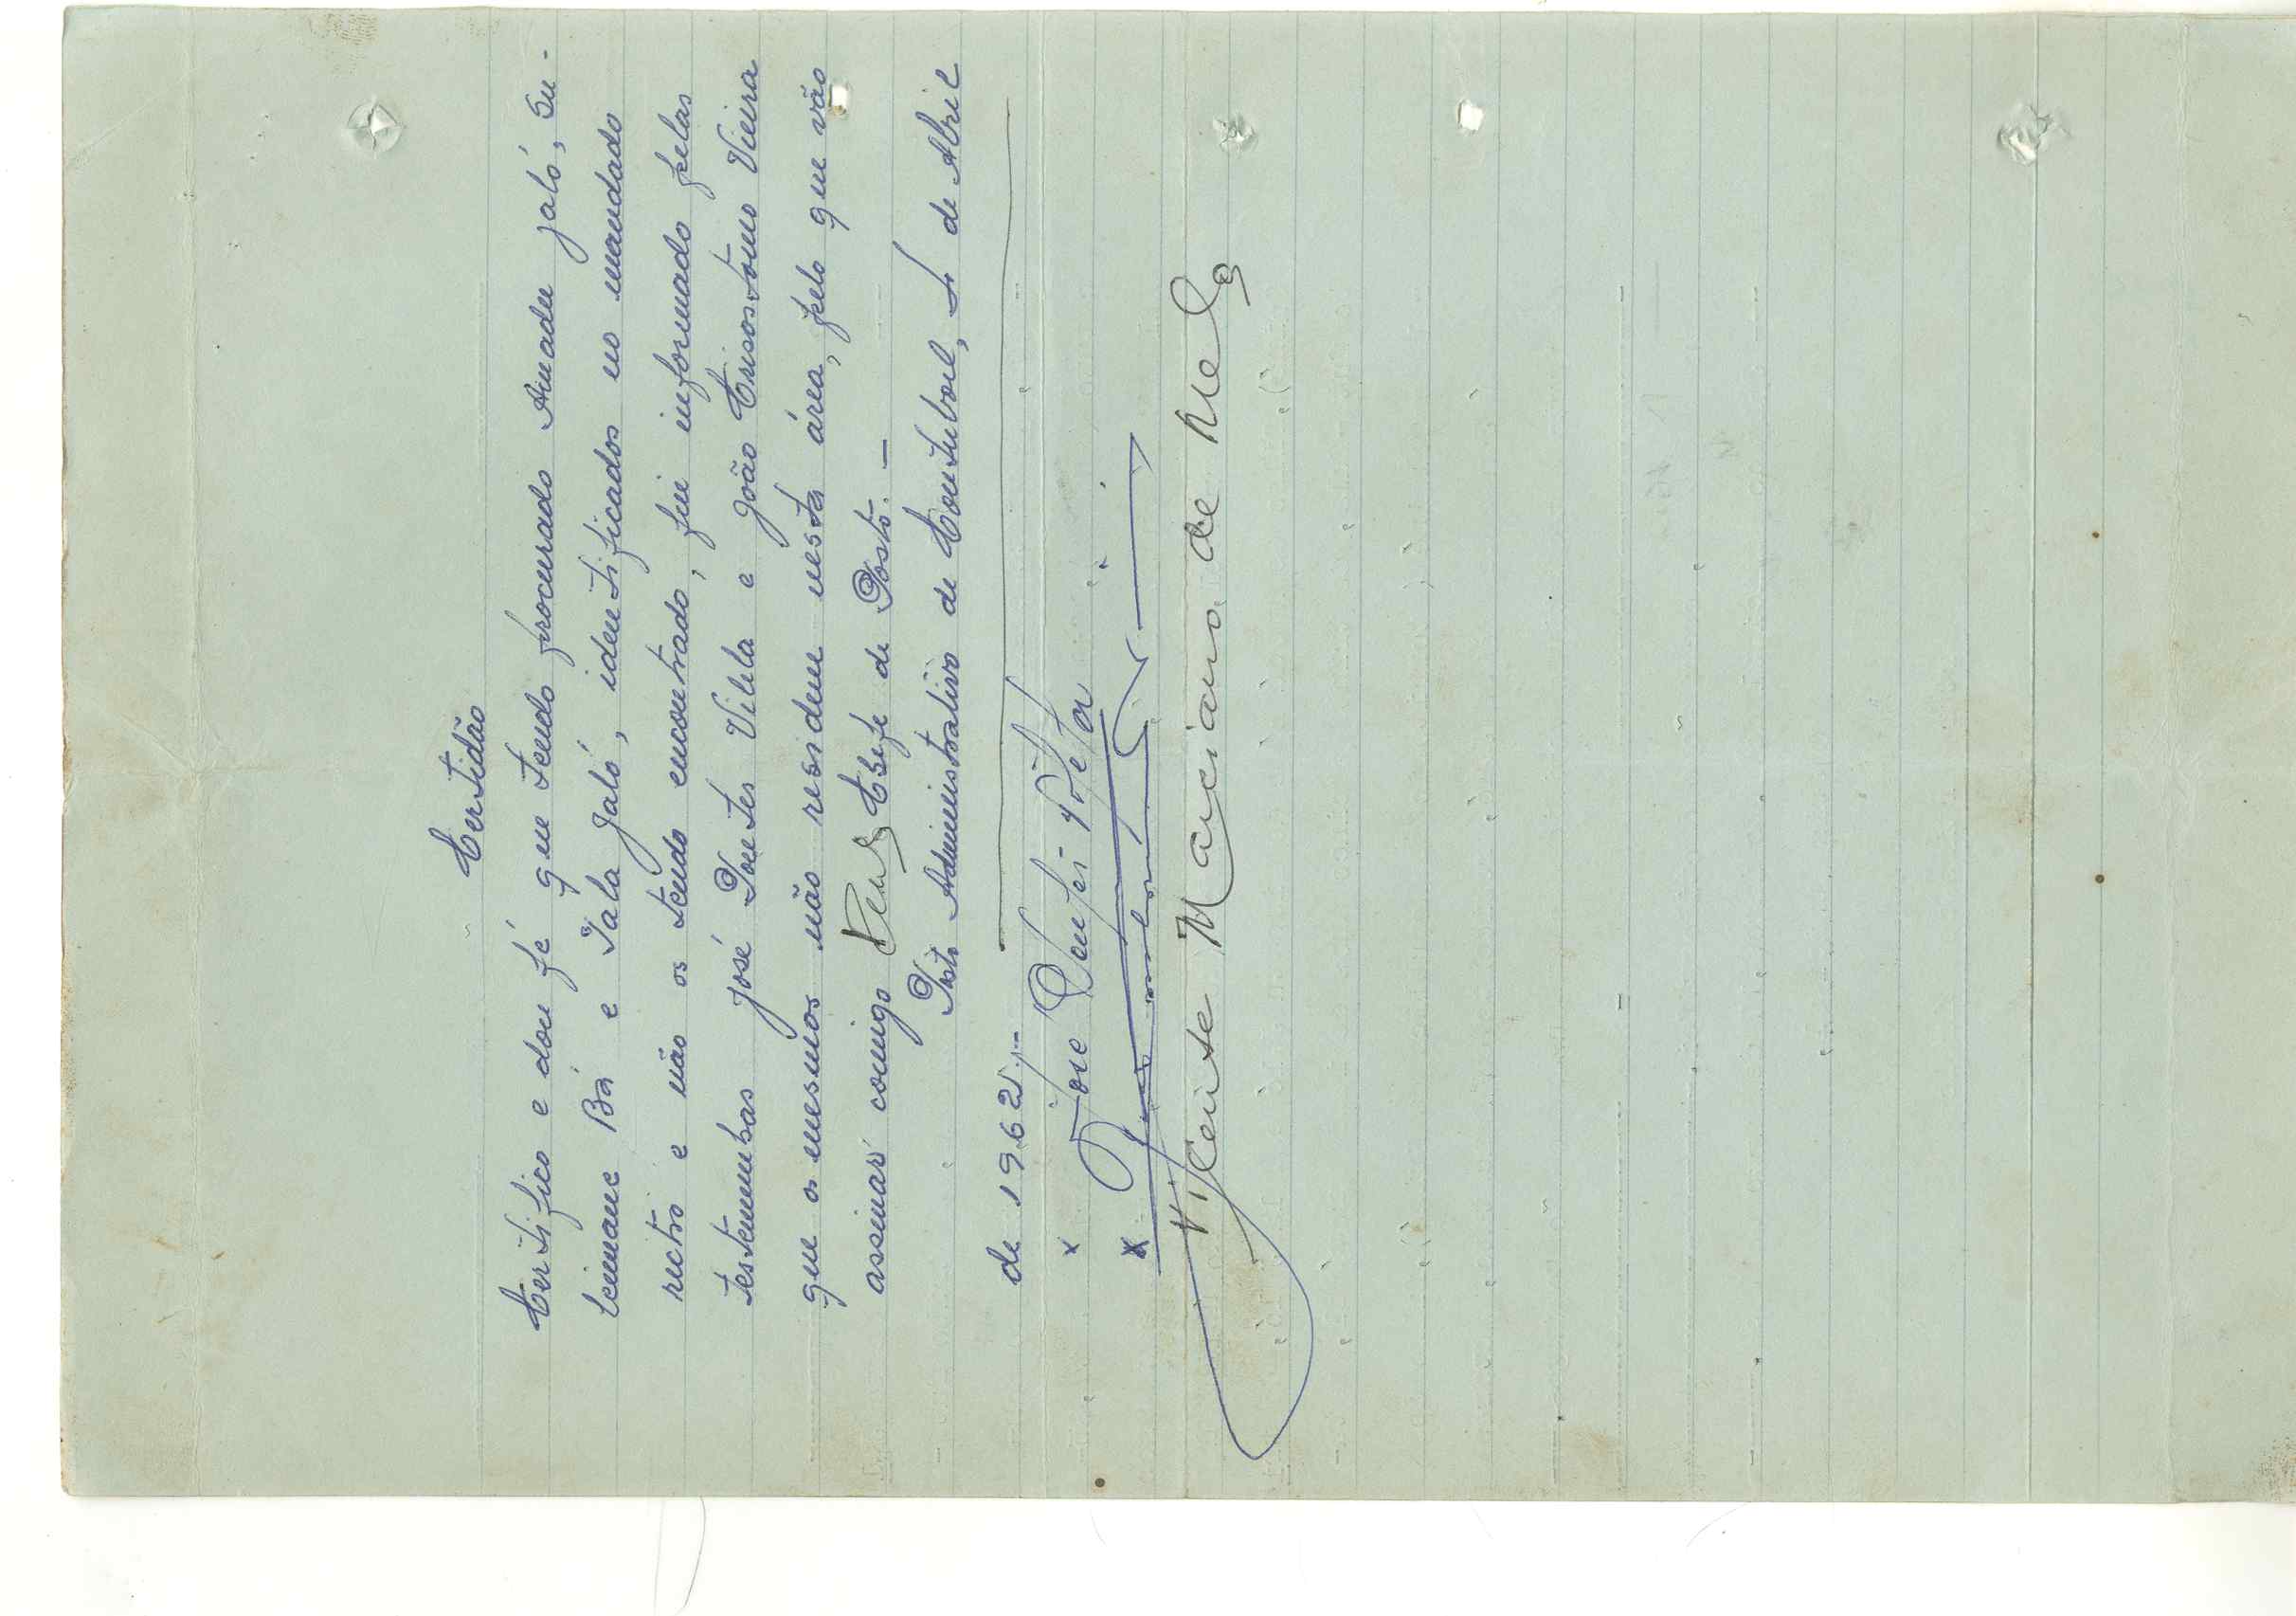 Certidão
Certifico e dou fé que tendo procurado Amadu Jaló, Su-
leimane Bá e Jála Jaló, identificados no mandado
rectro e não os tendo encontrado, fui informado pelas
testemunhas José Pontes Vilela e João Crisostomo Vieira
que os mesmos não residem nesta área, pelo que vão
assinar comigo Chefe de Posto. —
Posto Administrativo de Contuboel, de Abril
de 1962.--
x José
x
Vicente Marciano de Melo